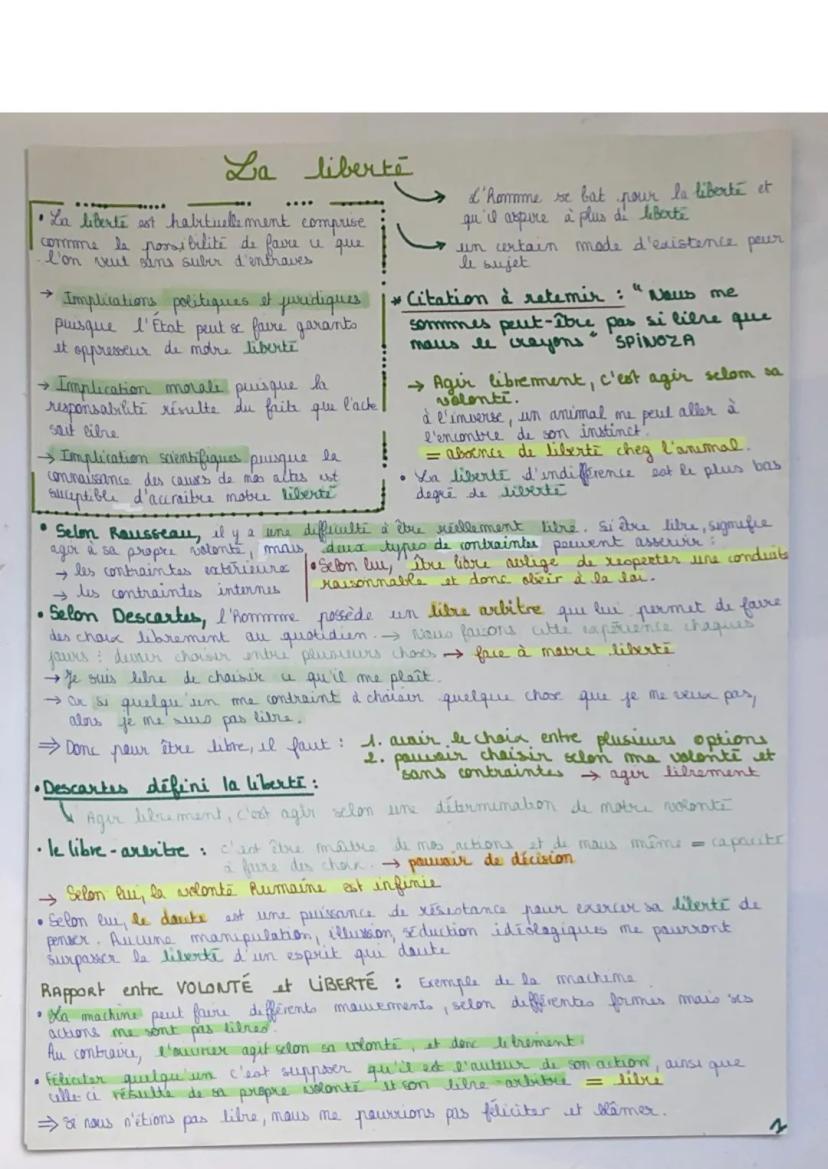 La liberté
→ L'Homme se bat pour la liberté et
qu'il aspire à plus de liberté
→ un certain mode d'existence pour
le sujet
• La liberté est habituellement comprise
comme la possibilité de faire ce que
l'on veut sans subir d'entraves
→ Implications politiques et juridiques
puisque l'État peut se faire garants
et oppresseur de notre liberté
→ Implication morale puisque la
responsabilité résulte du faite que l'acte
soit libre
→ Implication scientifiques puisque la
connaissance des causes de nos actes est
suceptible d'accraitre notre liberté
* Citation à retenir : "Nous ne
sommes peut-être pas si libre que
nous le croyons" SPINOZA
→ Agir librement, c'est agir selon sa
volonté.
à l'inverse, un animal ne peut aller à
l'encontre de son instinct.
= absence de liberté chez l'animal.
• La liberté d'indifférence est le plus bas
degré de liberté
• Selon Rousseau, il y a une difficulté à être réellement libre. Si être libre, signifie
agir à sa propre volonté, mais deux types de contraintes peuvent asservir :
→ les contraintes extérieure
→ les contraintes internes
• Selon lui, être libre oblige de respecter une conduite
raisonnable et donc obéir à la loi.
• Selon Descartes, l'Homme possède un libre arbitre qui lui permet de faire
des choix librement au quotidien. → Nous faisons cette expérience chaques
jours : devoir choisir entre plusieurs choses → face à notre liberté
→ Je suis libre de choisir ce qu'il me plaît.
→ Or si quelqu'un me contraint à choisir quelque chose que je ne veux pas,
alors je ne suis pas libre.
⇒ Donc pour être libre, il faut : 1. avoir le choix entre plusieurs options
2. pouvoir choisir selon ma volonté et
sans contraintes → agir librement
• Descartes défini la liberté :
↳ Agir librement, c'est agir selon une détermination de notre volonté
• le libre-arbitre : c'est être maître de nos actions et de nous même = capacité
à faire des choix. → pouvoir de décision
→ Selon lui, la volonté Humaine est infinie
• Selon lui, le doute est une puissance de résistance pour exercer sa liberté de
penser. Aucune manipulation, illusion, séduction idéologiques ne pourront
surpasser la liberté d'un esprit qui doute
RAPPORT entre VOLONTÉ et LIBERTÉ : Exemple de la machine
• La machine peut faire différents mouvements, selon différentes formes mais ses
actions ne sont pas libres.
Au contraire, l'ouvrier agit selon sa volonté, et donc librement.
• Féliciter quelqu'un c'est supposer qu'il est l'auteur de son action, ainsi que
celle ci résulte de sa propre volonté et son libre-arbitre = libre
⇒ Si nous n'étions pas libre, nous ne pourrions pas féliciter et blâmer.
1